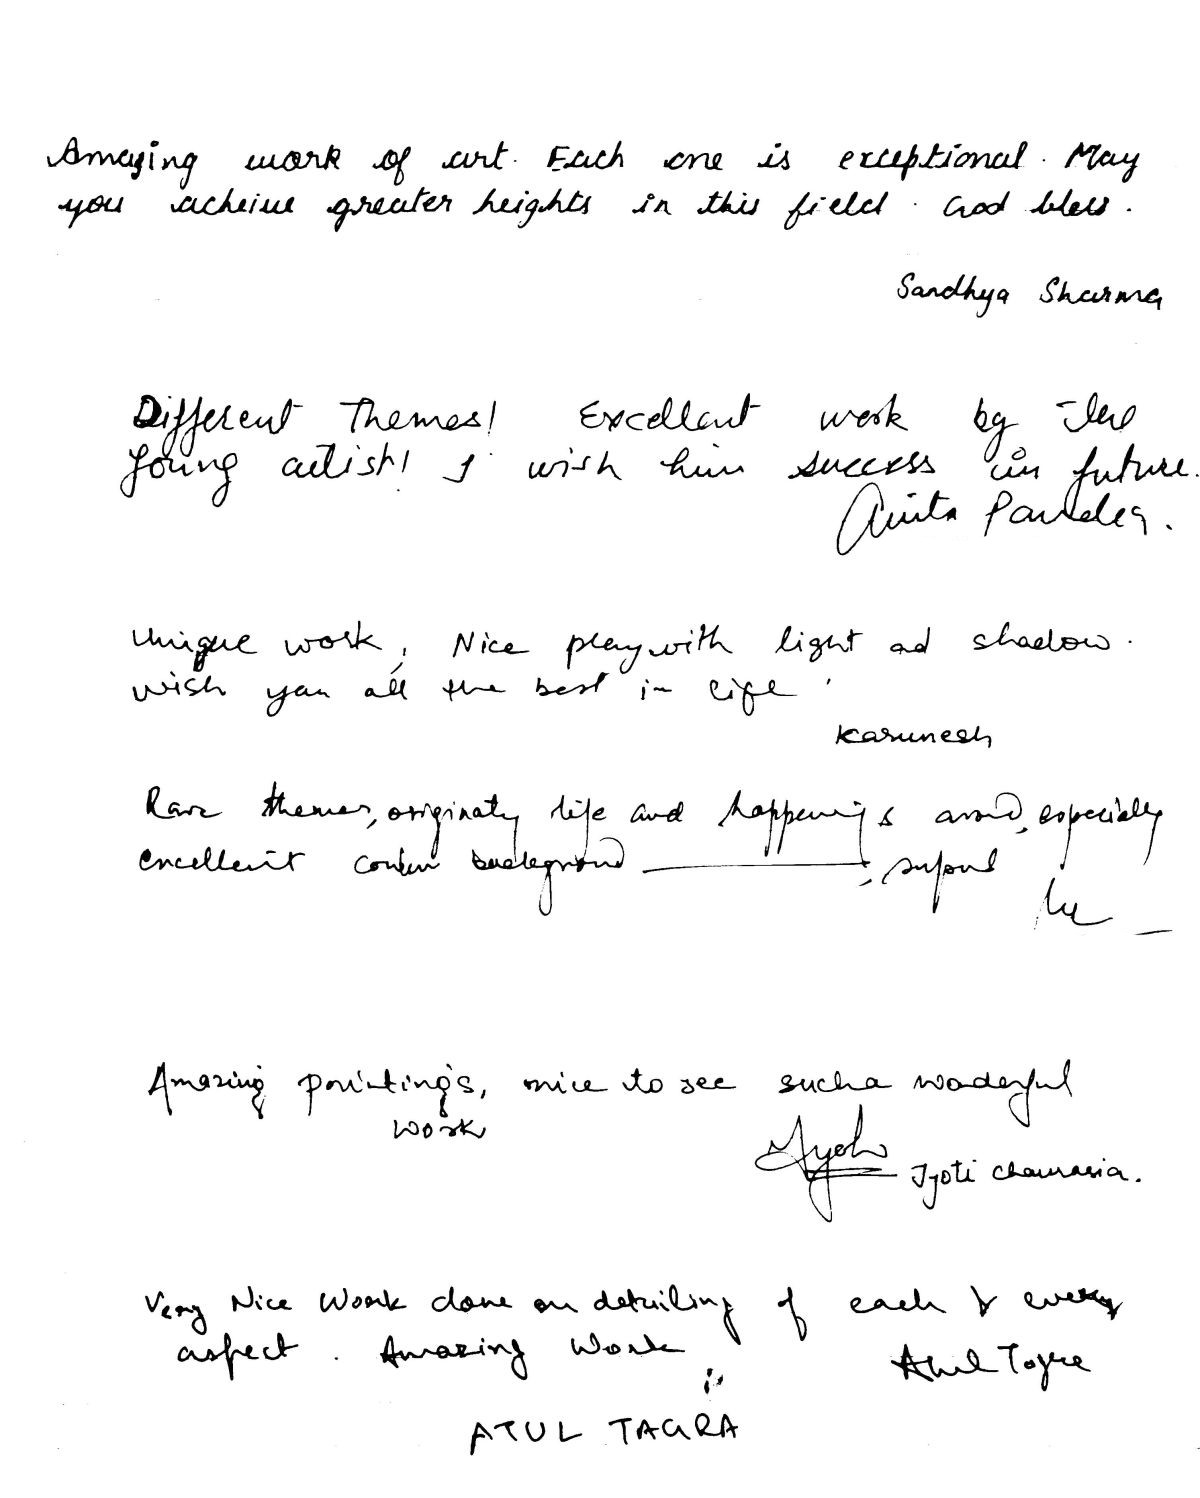 Amazing work of art. Each one is exceptional. May
you acheive greater heights in this field. God bless.
Sandhya Sharma
Different Themes! Excellent work by the
young artist! I wish him success in future.
Anita Pandey.
Unique work, Nice play with light ad shadow.
wish you all the best in life.
Karunesh
Rare themes, originaty life and happenings especially
excellent background
Amazing paintings, nice to see such a woderful
work
Jyoti
Jyoti Chaurasia.
Very Nice Work done on detailing of each & every
aspect. Amazing Work
Atul Tagra
ATUL TAGRA